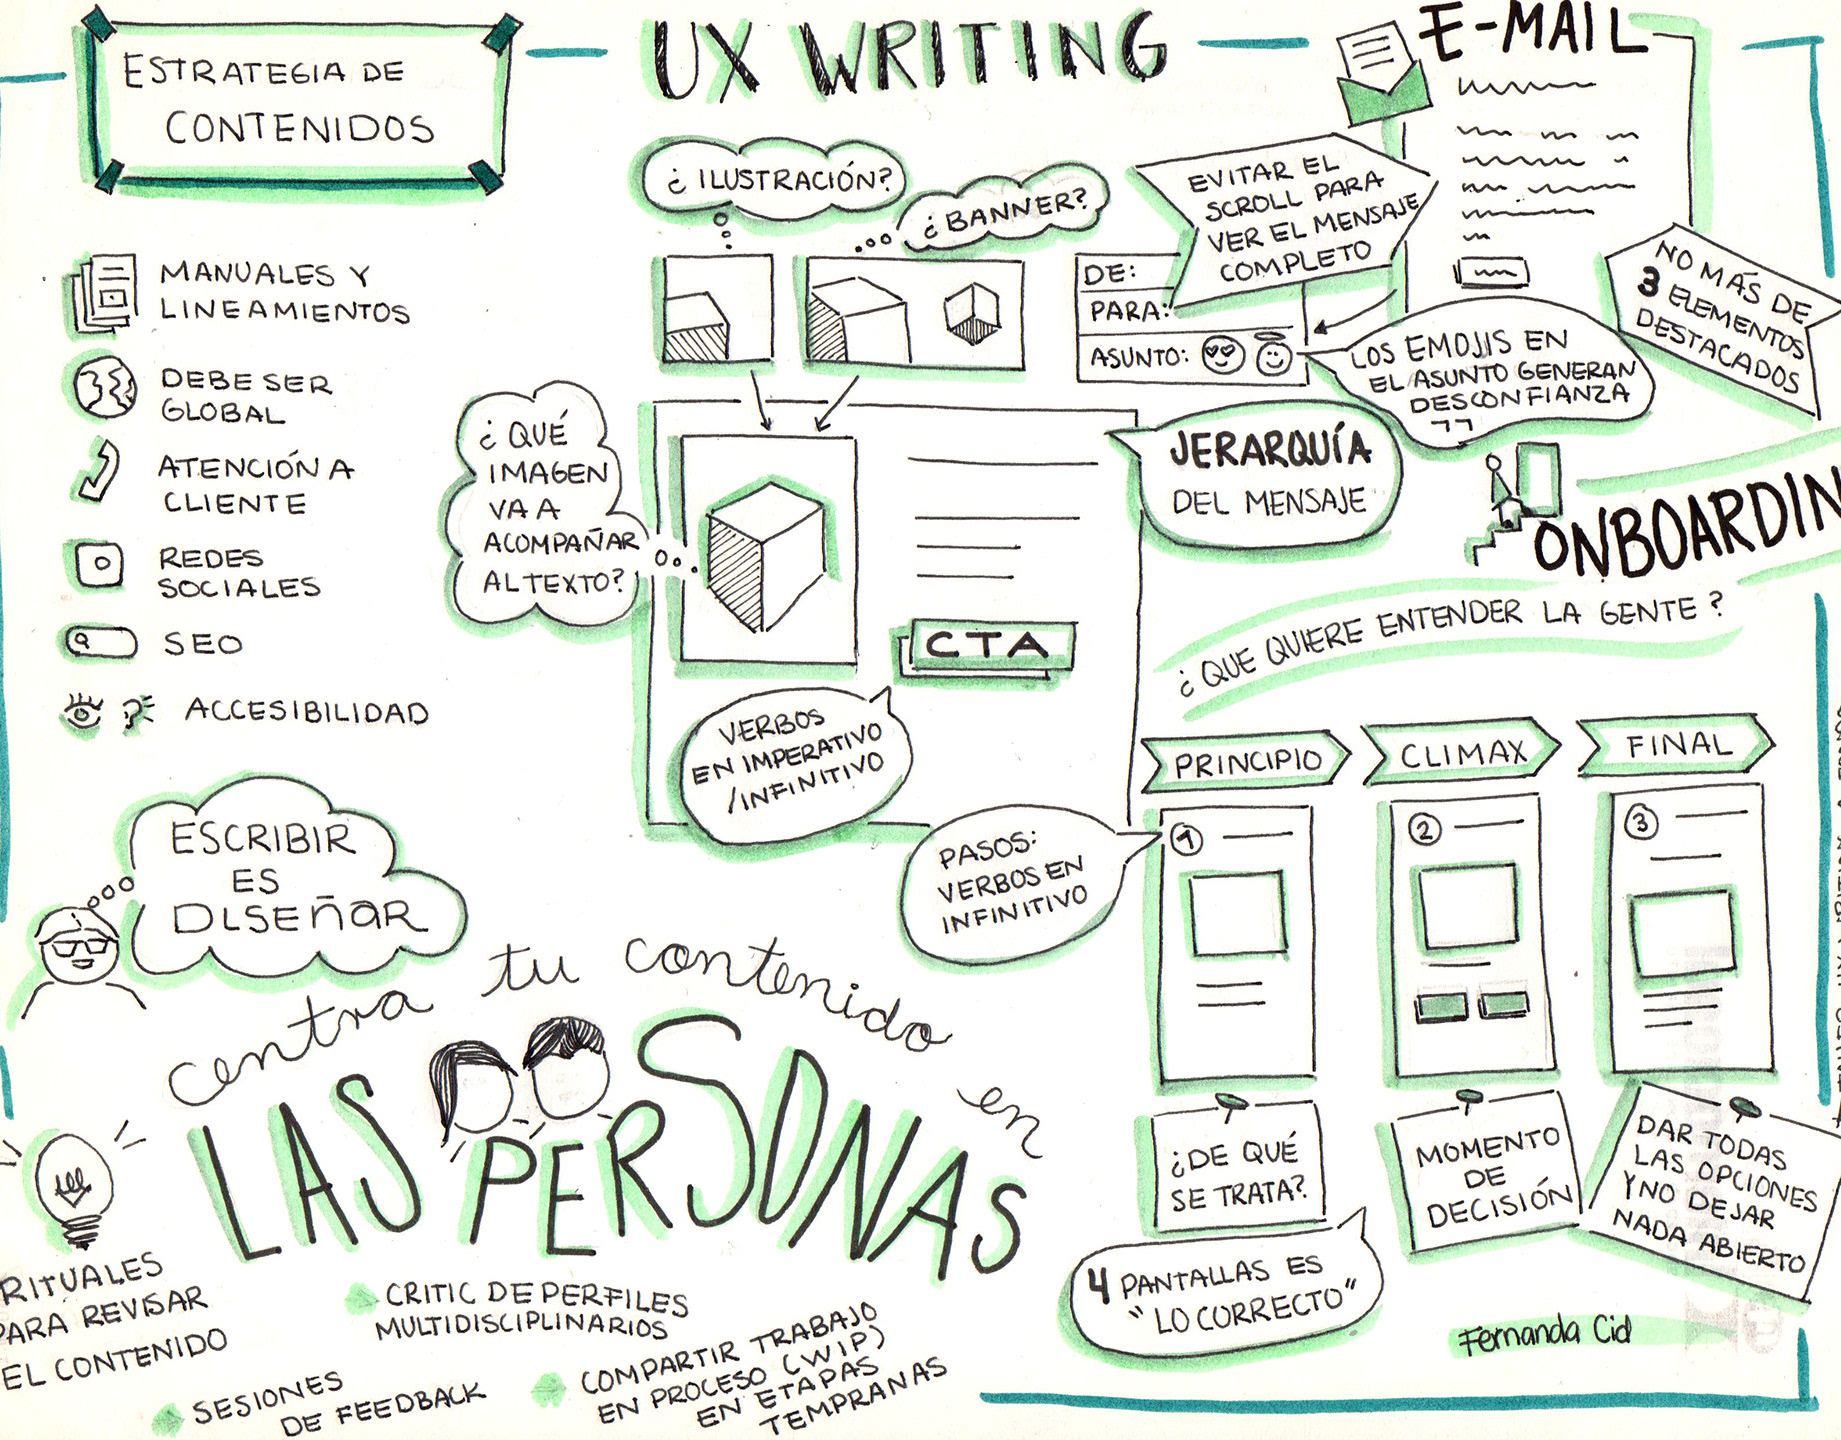 ESTRATEGIA DE
CONTENIDOS
MANUALES Y
LINEAMIENTOS
DEBE SER
GLOBAL
ATENCIÓN A
CLIENTE
REDES
SOCIALES
SEO
ACCESIBILIDAD
ESCRIBIR
ES
DISEÑAR
UX WRITING
¿ILUSTRACIÓN?
¿BANNER?
¿QUÉ
IMAGEN
VA A
ACOMPAÑAR
AL TEXTO?
JERARQUÍA
DEL MENSAJE
CTA
VERBOS
EN IMPERATIVO
/INFINITIVO
E-MAIL
EVITAR EL
SCROLL PARA
VER EL MENSAJE
COMPLETO
DE:
PARA:
ASUNTO:
LOS EMOJIS EN
EL ASUNTO GENERAN
DESCONFIANZA
NO MÁS DE
3 ELEMENTOS
DESTACADOS
ONBOARDIN
¿QUE QUIERE ENTENDER LA GENTE?
PRINCIPIO
CLIMAX
FINAL
PASOS:
VERBOS EN
INFINITIVO
1
2
3
¿DE QUÉ
SE TRATA?
MOMENTO
DE
DECISIÓN
DAR TODAS
LAS OPCIONES
Y NO DEJAR
NADA ABIERTO
4 PANTALLAS ES
"LO CORRECTO"
Fernanda Cid
centra tu contenido en
LAS PERSONAS
RITUALES
PARA REVISAR
EL CONTENIDO
CRITIC DE PERFILES
MULTIDISCIPLINARIOS
SESIONES
DE FEEDBACK
COMPARTIR TRABAJO
EN PROCESO (WIP)
EN ETAPAS
TEMPRANAS